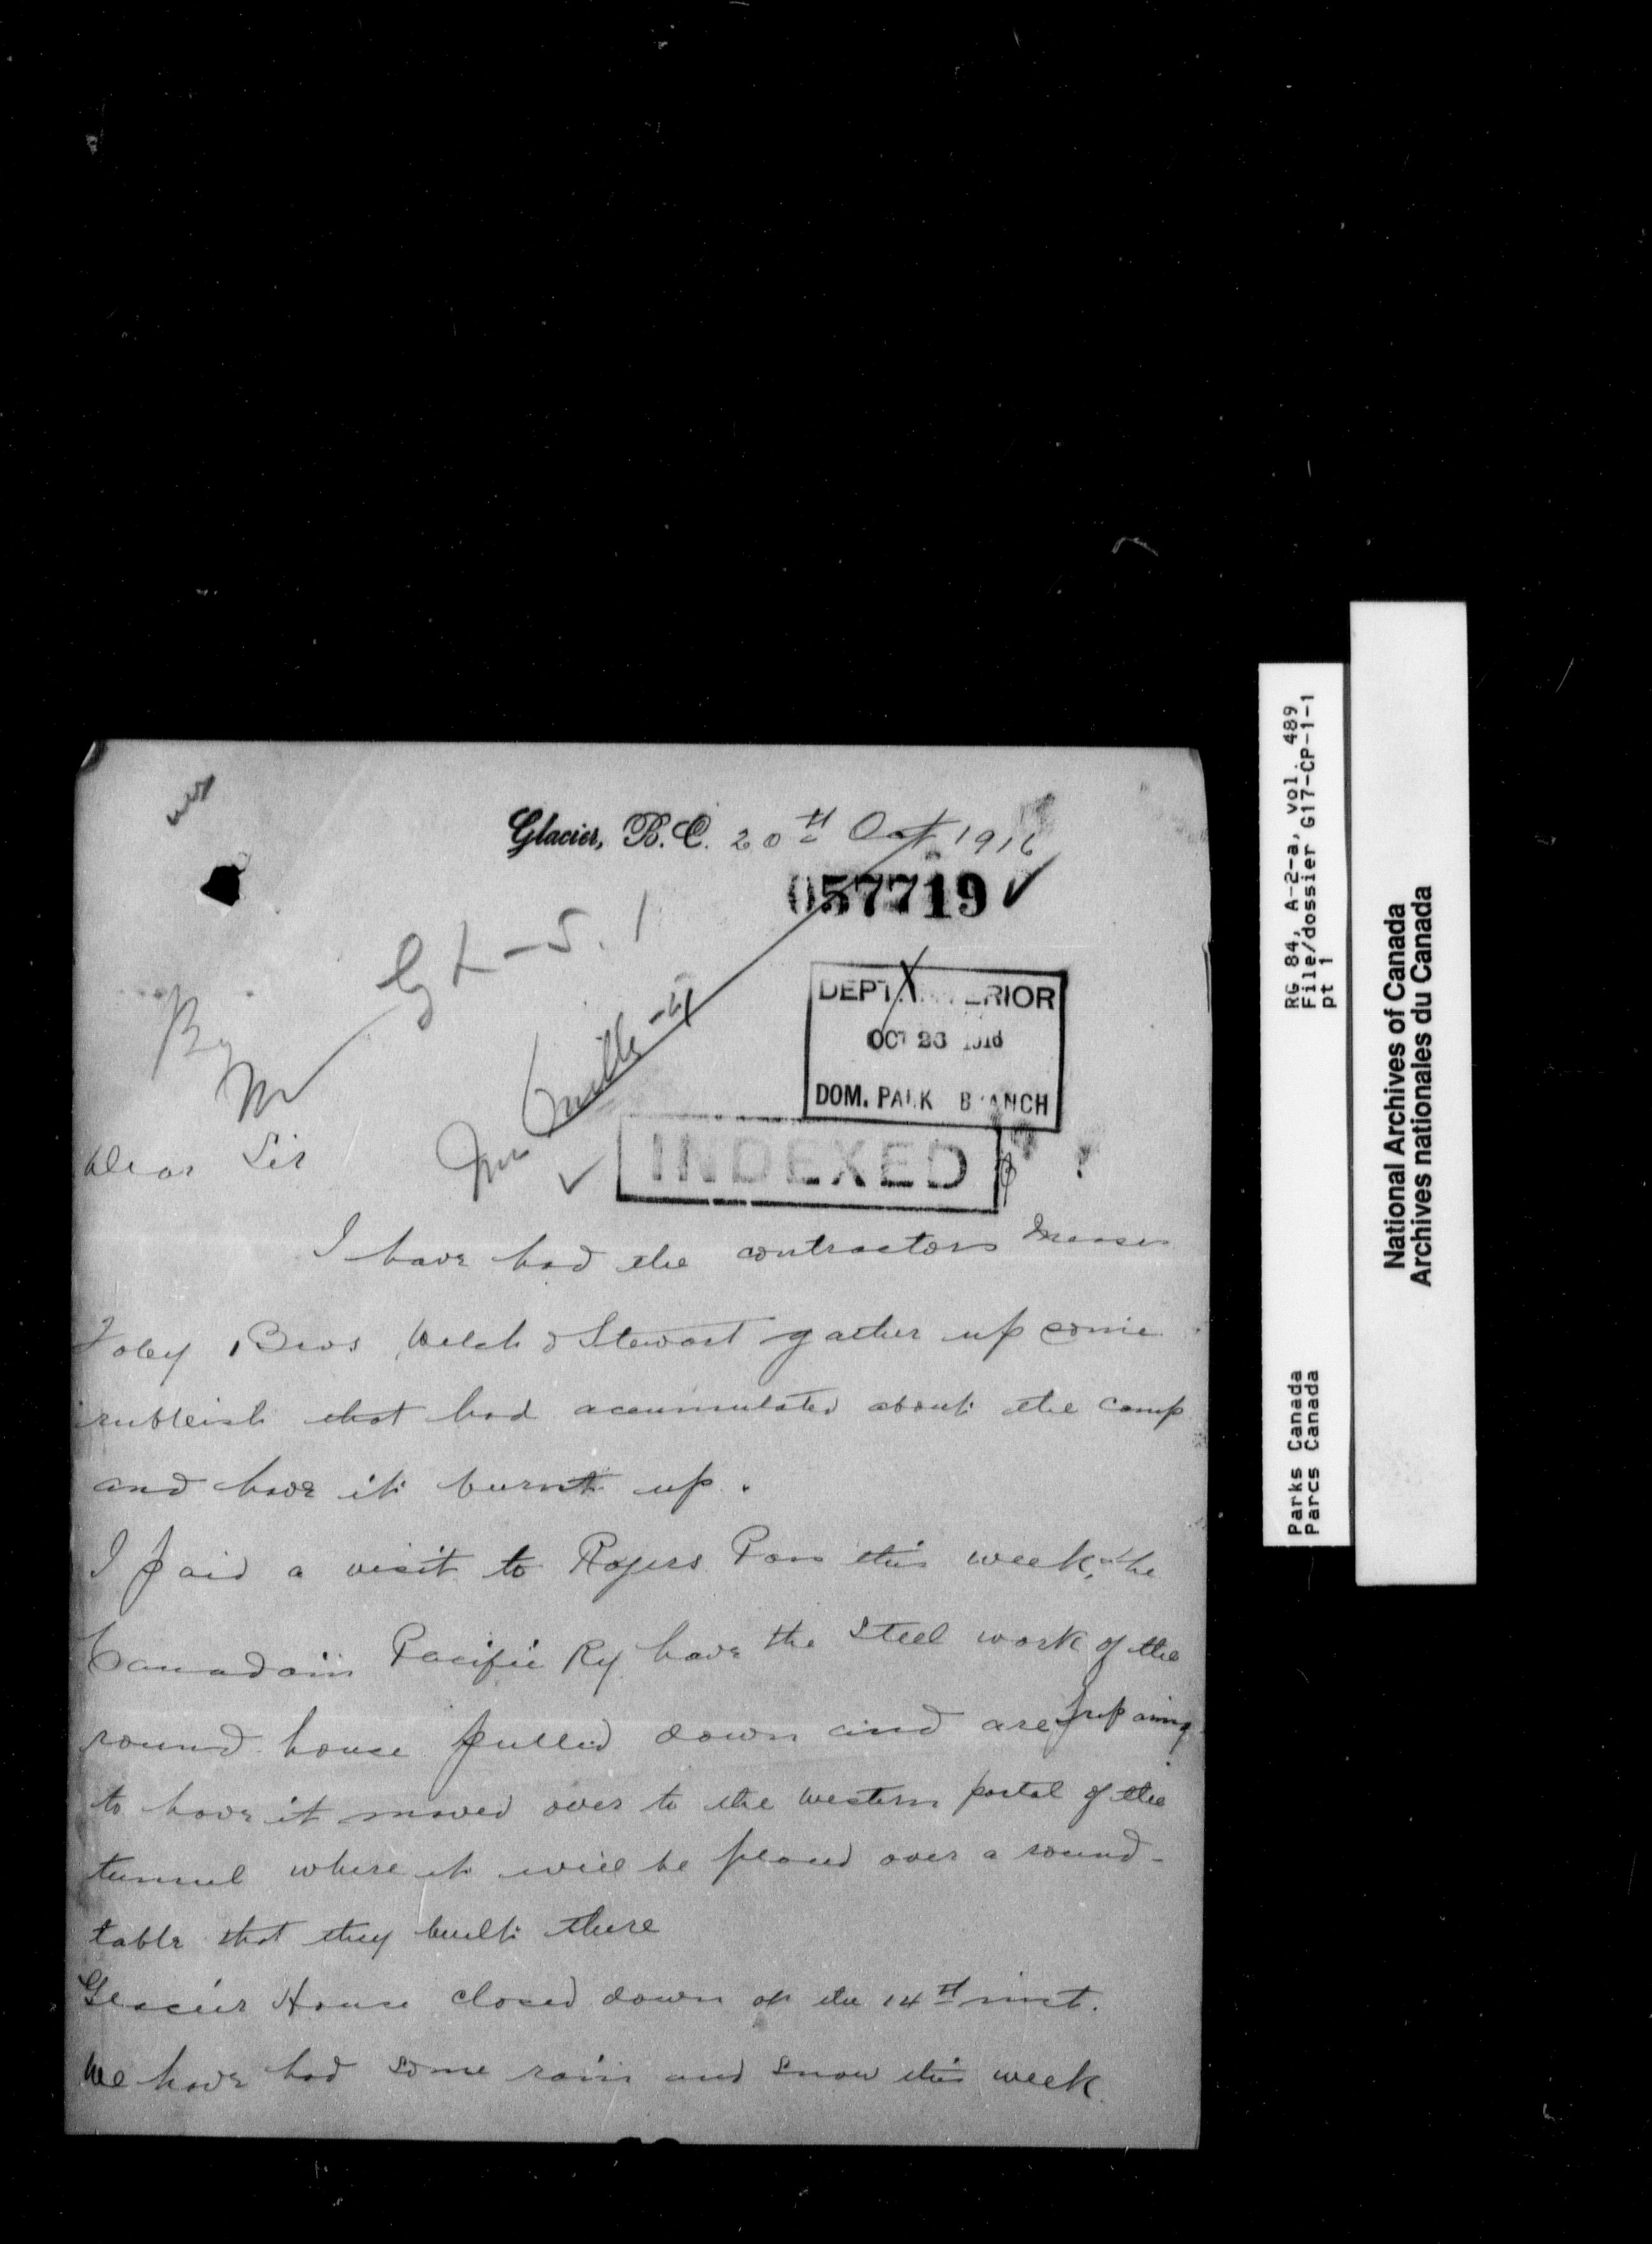 Glacier, B.C. 20th Oct 1916
057719
Gt-5.1
DEPT. INTERIOR
OCT 23 1916
DOM. PARK BRANCH
INDEXED
Dear Sir
I have had the contractors Messrs
Foley Bros, Welch & Stewart gather up some
rubbish that had accumulated about the camp
and have it burnt up.
I paid a visit to Rogers Pass this week, the
Canadain Pacific Ry have the steel work of the
round house pulled down and are prepairing
to have it moved over to the western portal of the
tunnel where it will be placed over a round-
table that they built there
Glacier House closed down on the 14th inst.
We have had some rain and snow this week
RG 84, A-2-a, vol. 489,
File/dossier G17-CP-1-1
pt 1
Parks Canada
Parcs Canada
National Archives of Canada
Archives nationales du Canada